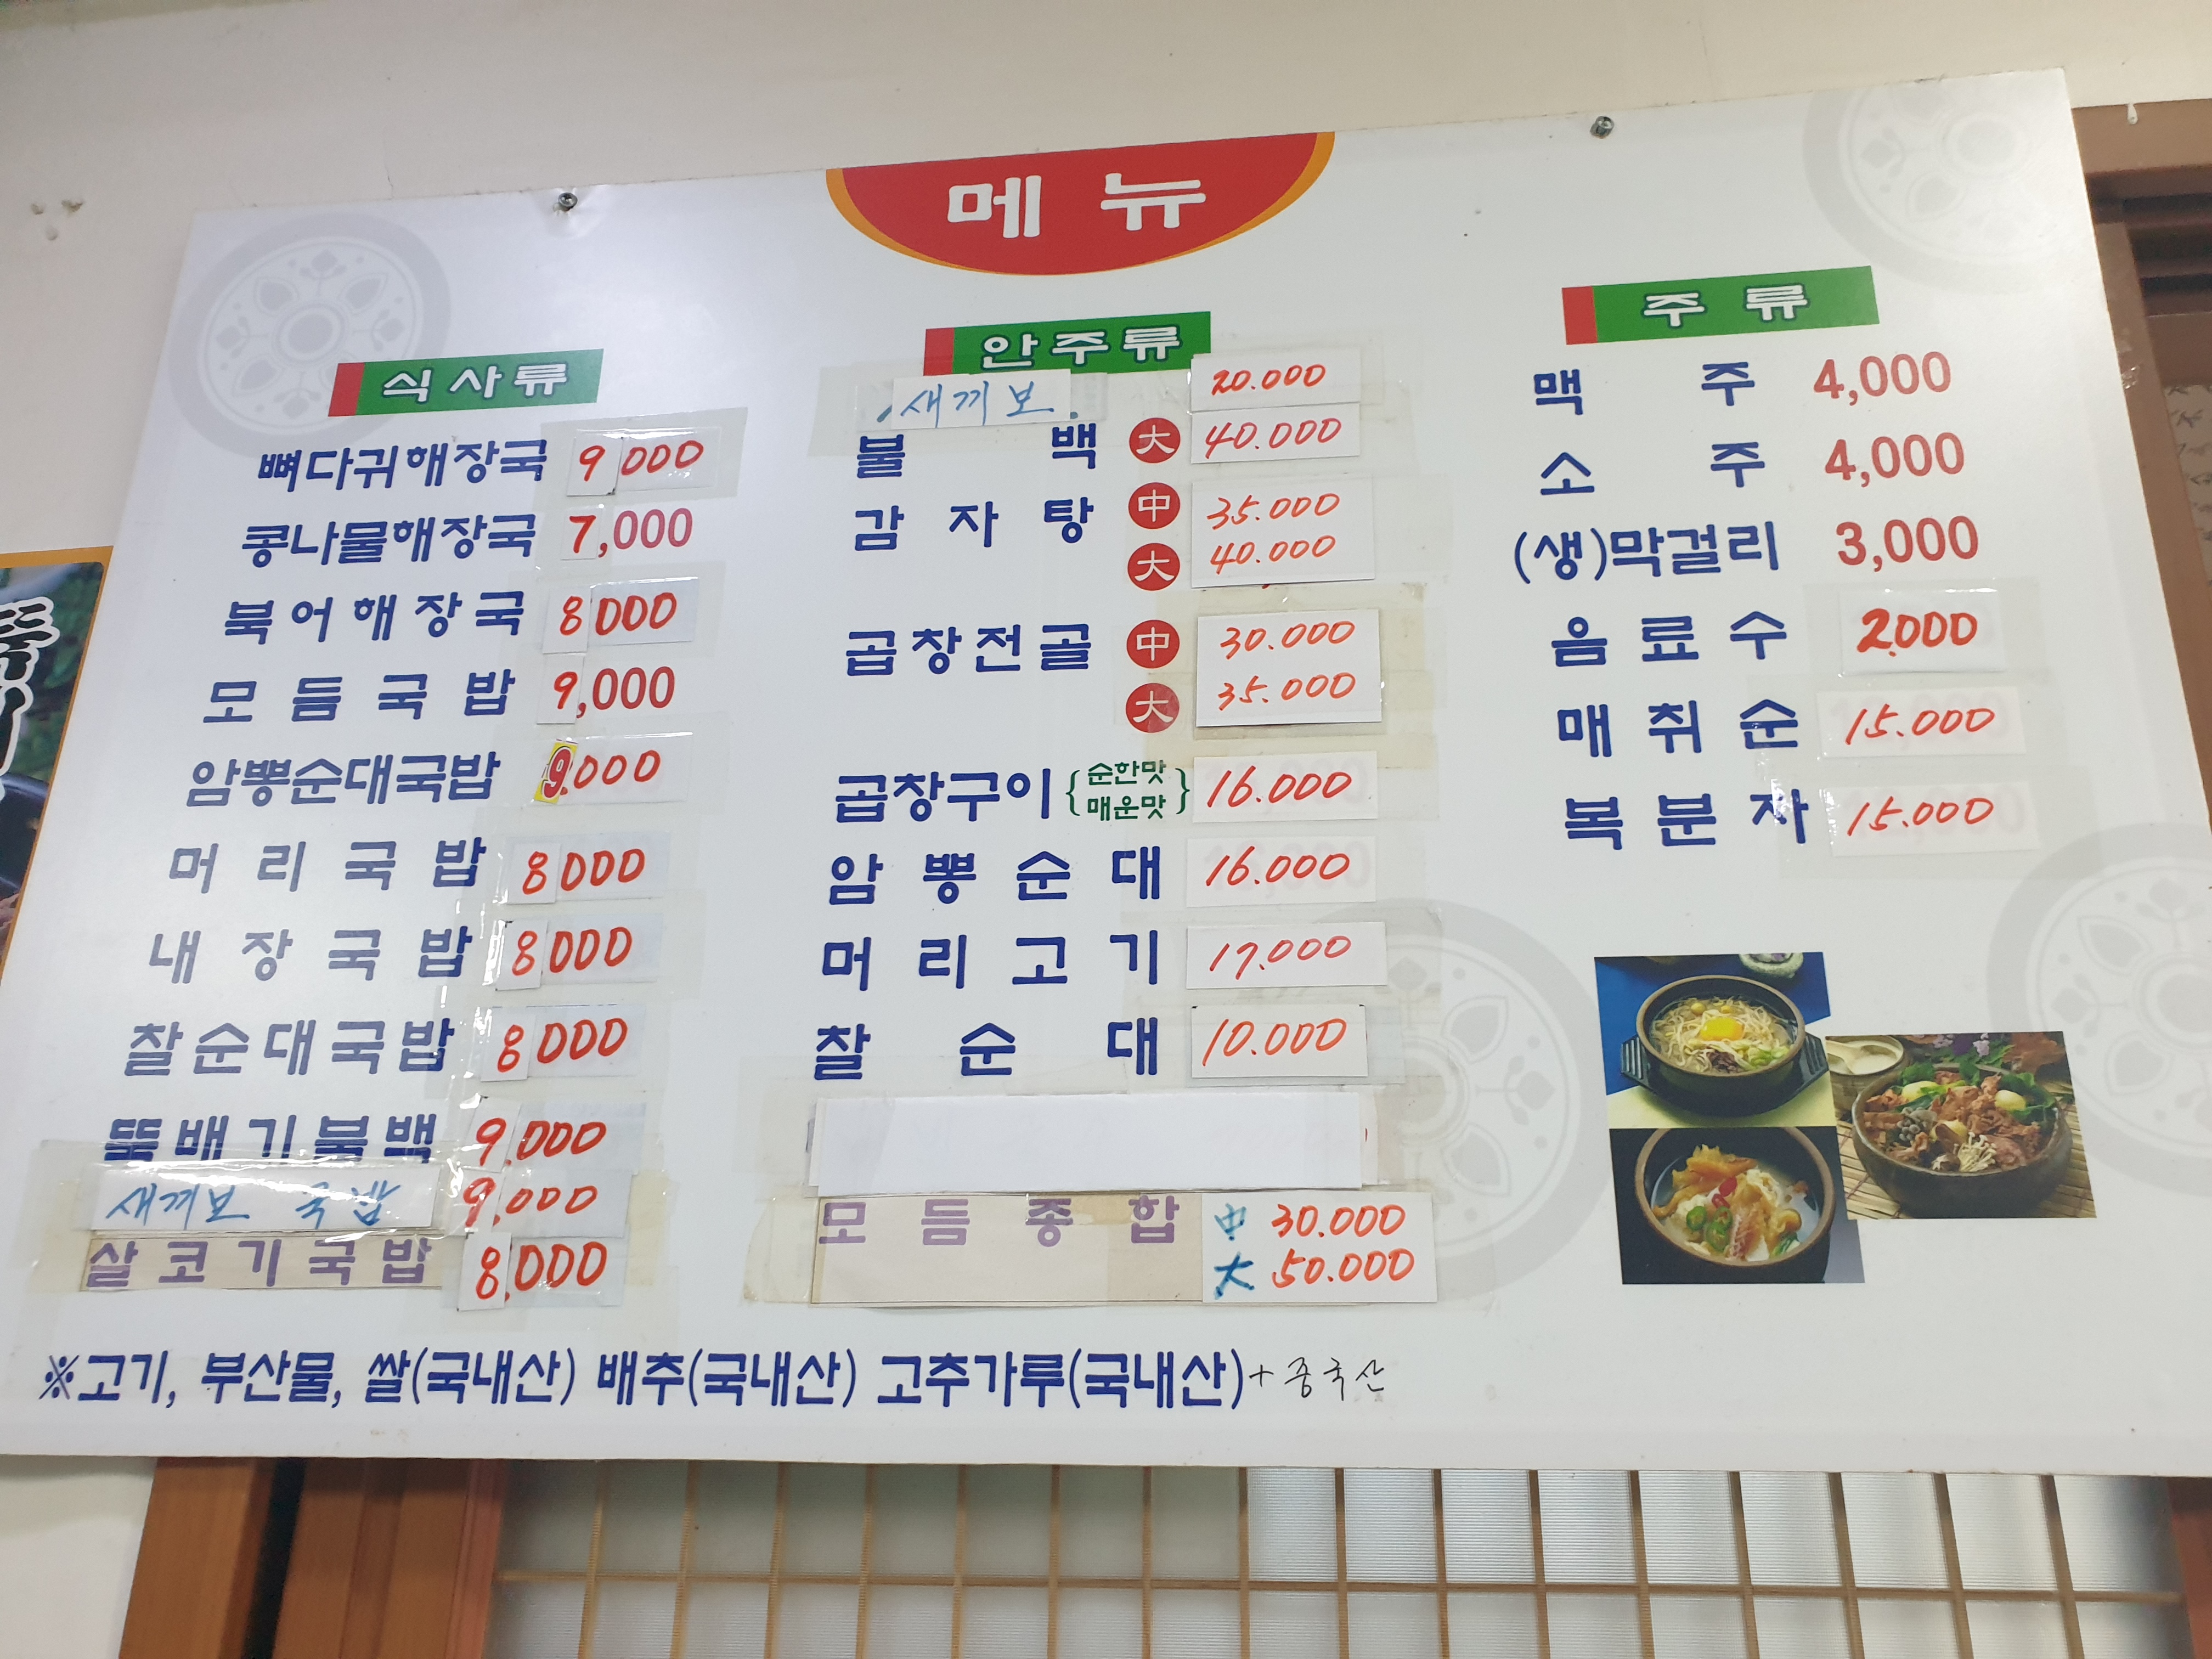 메뉴
식사류
뼈다귀해장국 9,000
콩나물해장국 7,000
북어해장국 8,000
모듬국밥 9,000
암뽕순대국밥 9,000
머리국밥 8,000
내장국밥 8,000
찰순대국밥 8,000
뚝배기불백 9,000
새끼보 국밥 9,000
살코기국밥 8,000
안주류
새끼보 20.000
불백 大 40.000
감자탕 中 35.000
大 40.000
곱창전골 中 30.000
大 35.000
곱창구이 {순한맛 매운맛} 16.000
암뽕순대 16.000
머리고기 17.000
찰순대 10.000
모듬종합 中 30.000
大 50.000
주류
맥주 4,000
소주 4,000
(생)막걸리 3,000
음료수 2.000
매취순 15.000
복분자 15.000
※고기, 부산물, 쌀(국내산) 배추(국내산) 고추가루(국내산)+중국산